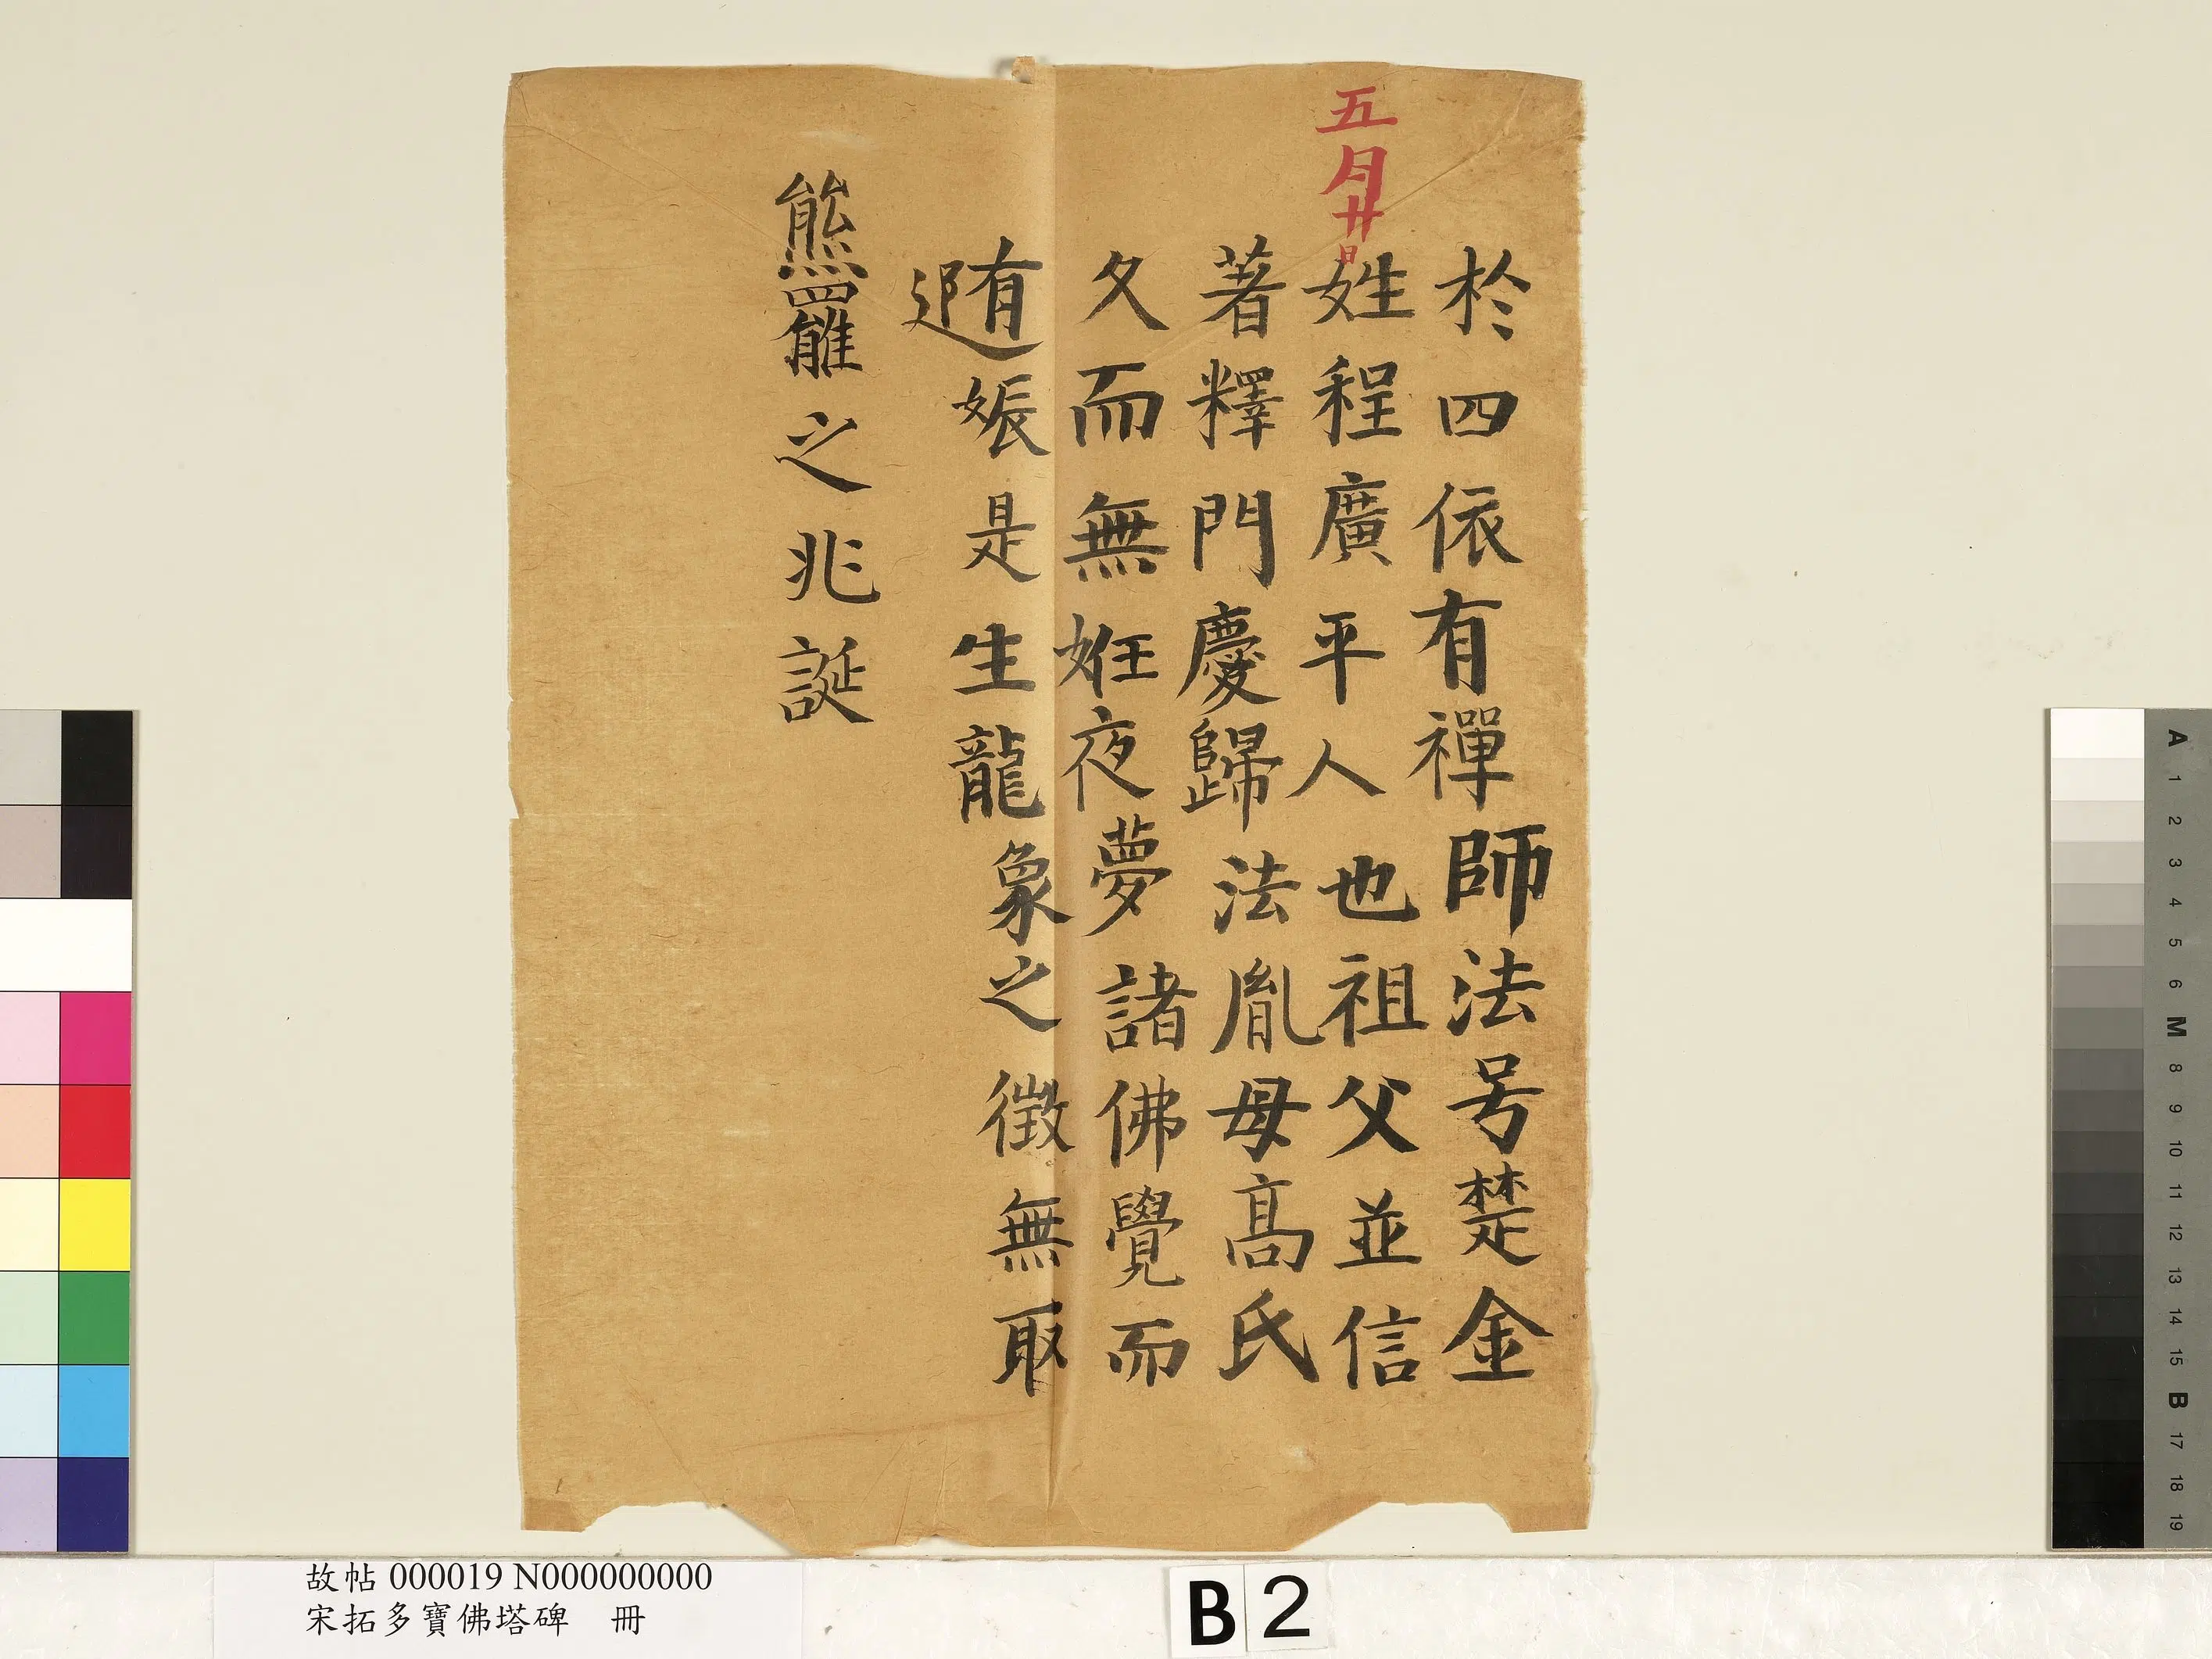 五月廿日
於四依有禪師法号楚金
姓程廣平人也祖父並信
著釋門慶歸法胤母髙氏
久而無姙夜夢諸佛覺而
有娠是生龍象之徵無取
熊羆之兆誕
故帖 000019 N000000000
宋拓多寶佛塔碑 冊
B 2
A 1 2 3 4 5 6 M 8 9 10 11 12 13 14 15 B 17 18 19